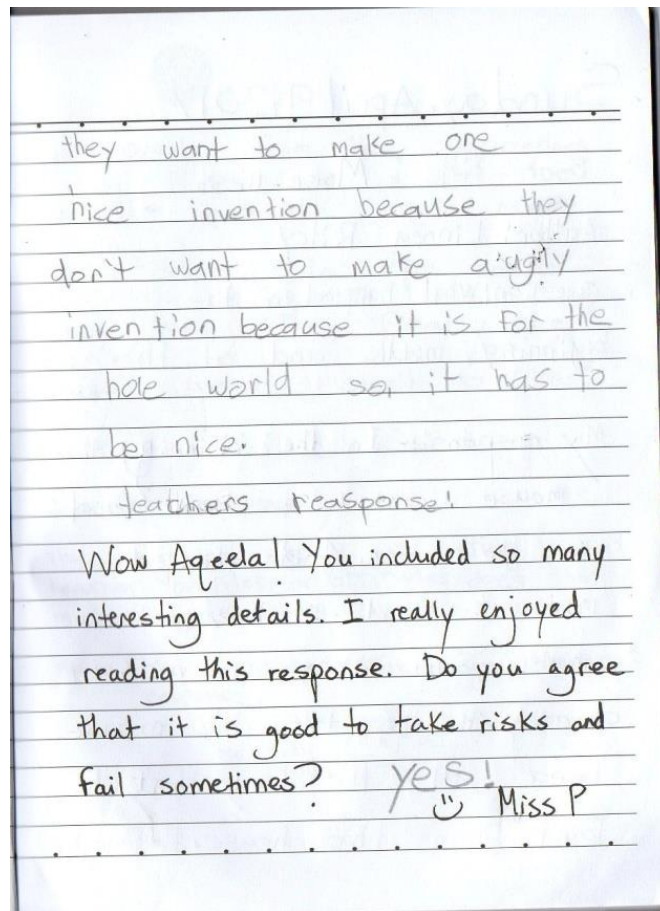 they want to make one
nice invention because they
don't want to make a ugily
invention because it is for the
hole world so, it has to
be nice.
teachers reasponse:
Wow Aqeela! You included so many
interesting details. I really enjoyed
reading this response. Do you agree
that it is good to take risks and
fail sometimes? yes!
Miss P